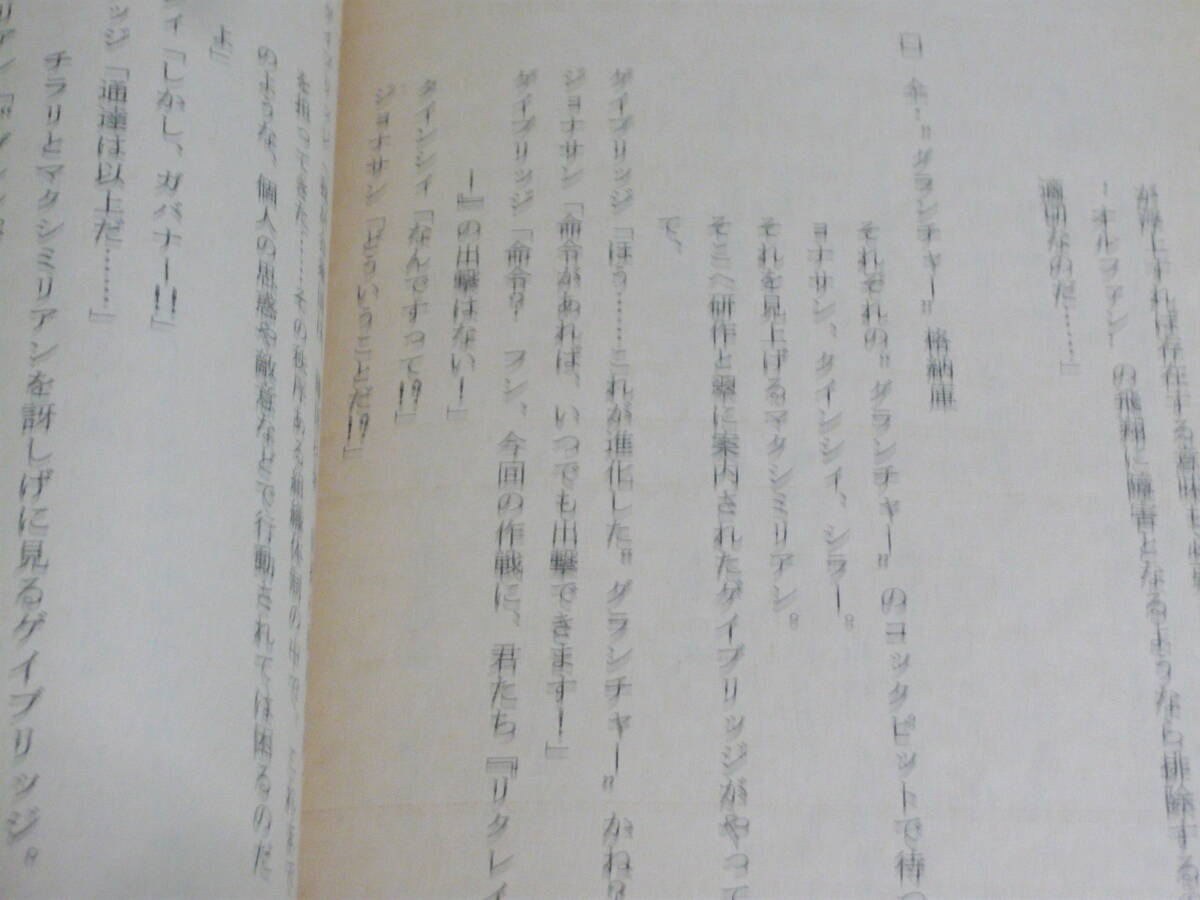 ーオルファン〟の飛翔に障害となるようなら排除する
適切なのだ……』
口 傘〟グランチャー〟格納庫
それぞれの〟グランチャー〟のコックピットで待つ
ョナサン、クインシィ、シラー。
それを見上げるマクシミリアン。
そこへ研作と翠に案内されたゲイブリッジがやって
で、
ゲイブリッジ「ほう……これが進化した〟グランチャー〟かね?
ジョナサン「命令があれば、いつでも出撃できます!」
ゲイブリッジ「命令? フン、今回の作戦に、君たち『リクレイ
ー』の出撃はない!」
クインシィ「なんですって!?」
ジョナサン「どういうことだ!?」
のような、個人の思惑や敵意などで行動されては困るのだ
よ」
ィ「しかし、ガバナー!!」
ッジ「通達は以上だ……」
チラリとマクシミリアンを訝しげに見るゲイブリッジ。